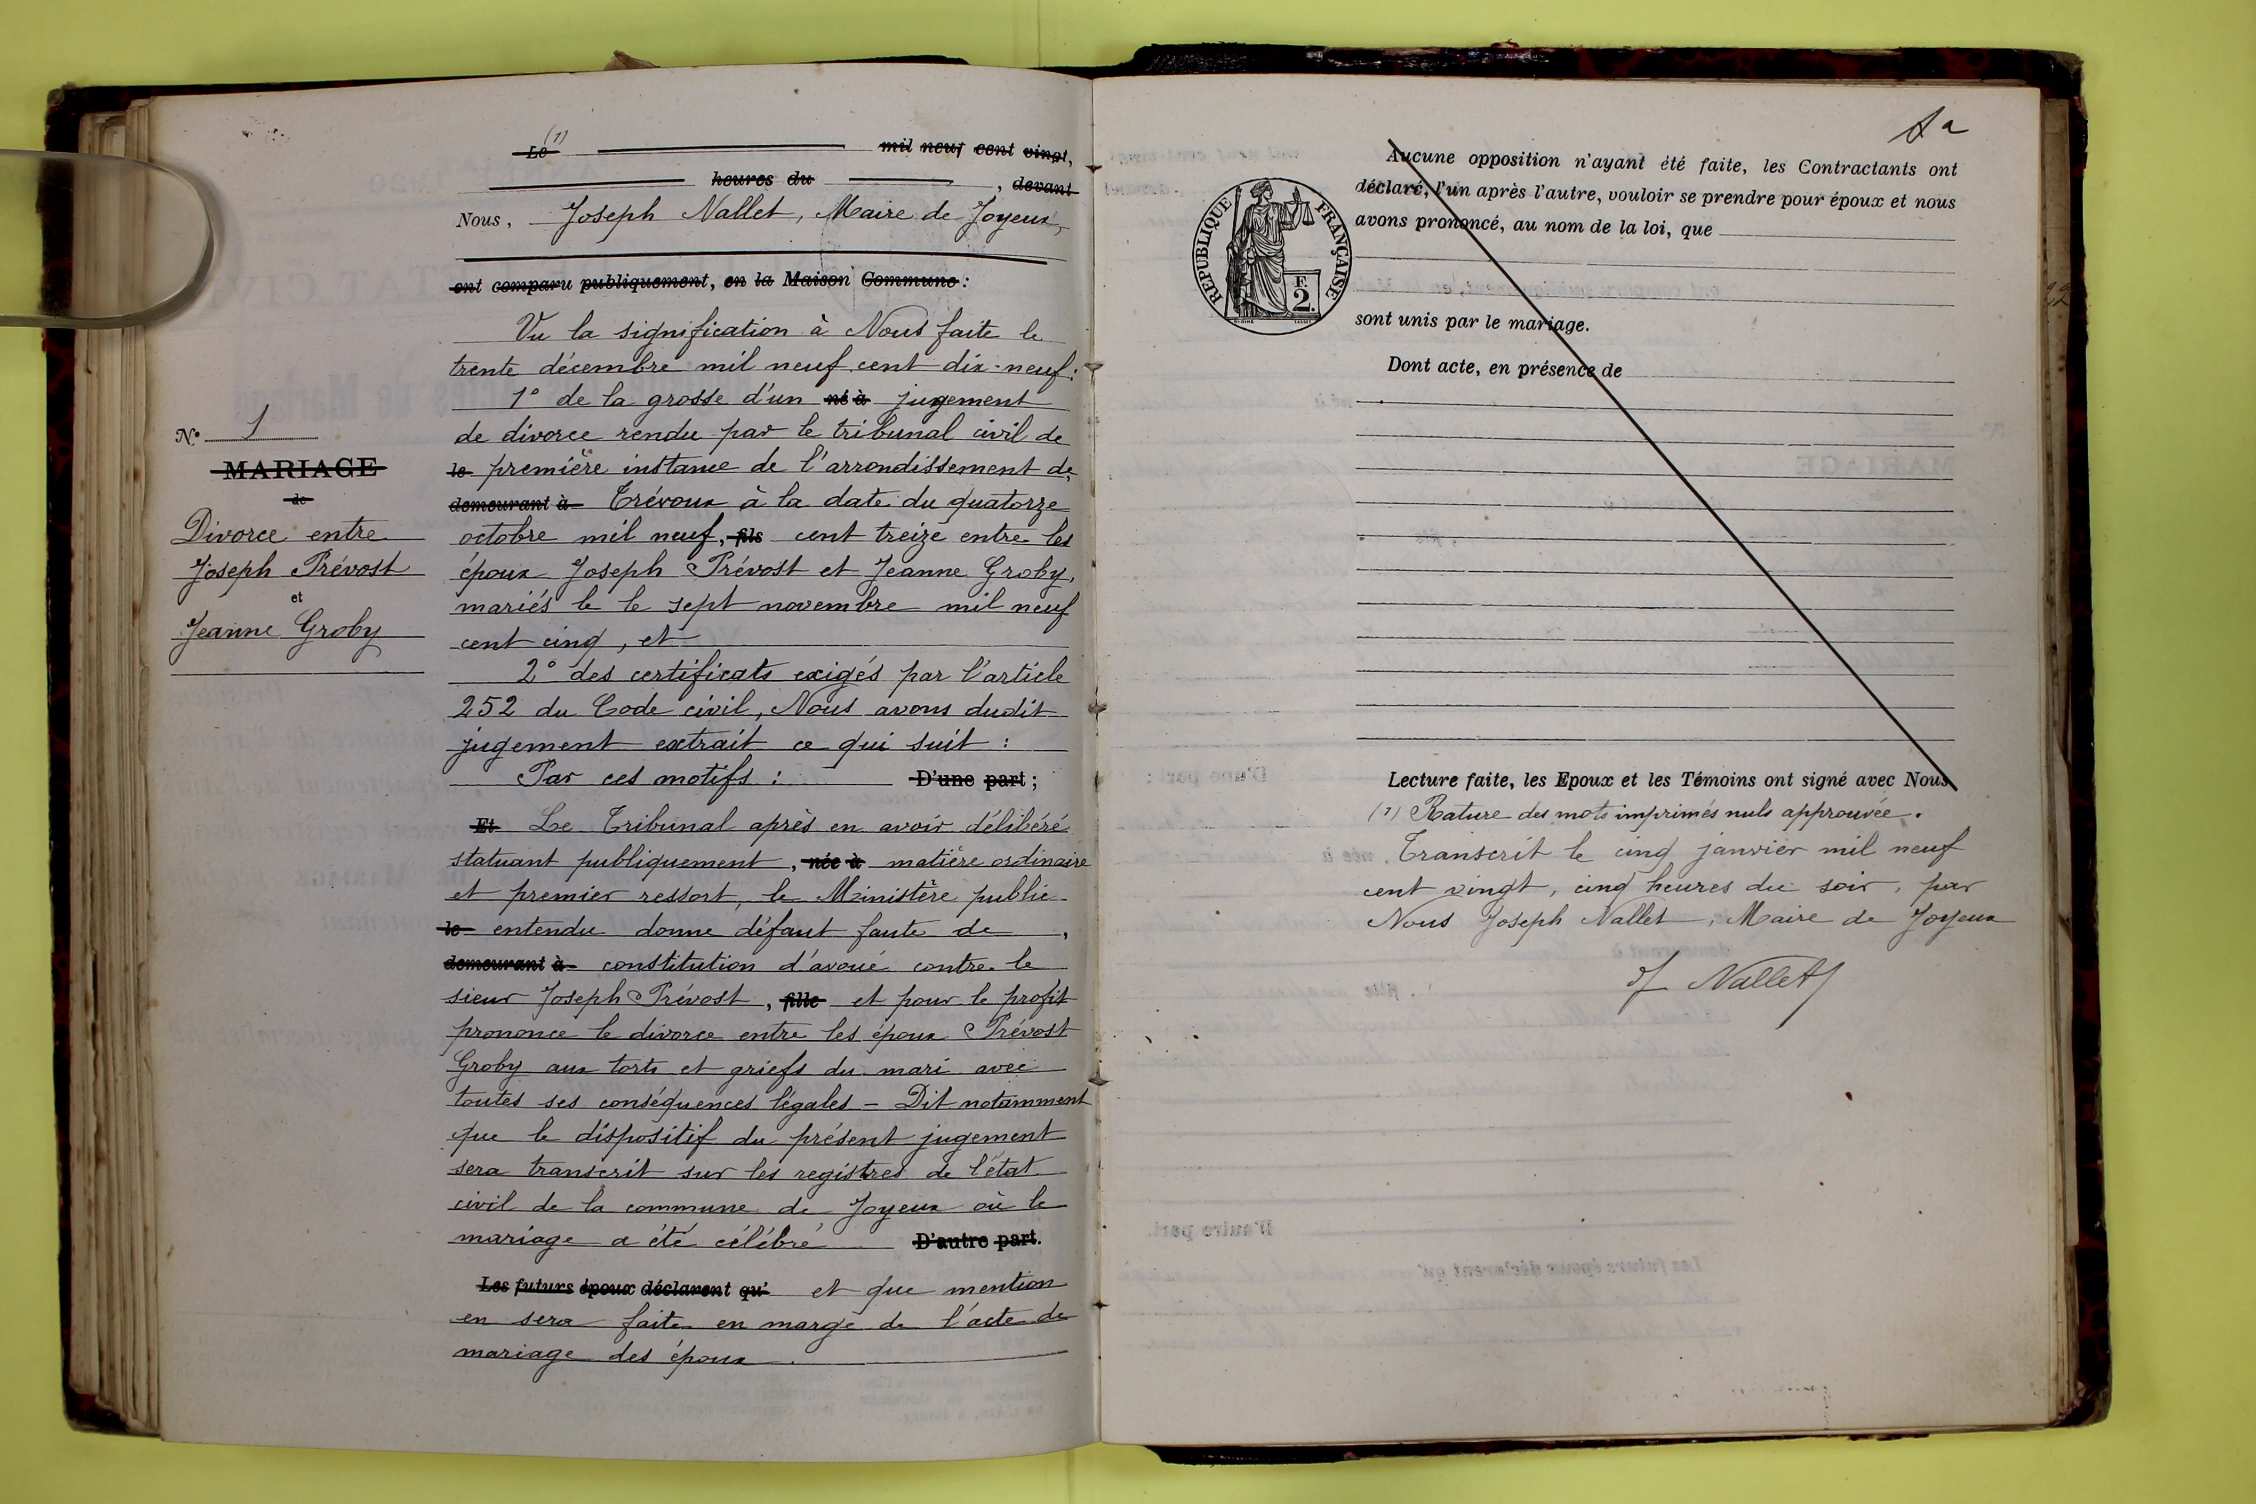 (1)
Le mil neuf cent vingt,
heures du , devant
Nous, Joseph Nallet, Maire de Joyeux,
ont comparu publiquement, en la Maison Commune :
Vu la signification à Nous faite le
trente décembre mil neuf cent dix-neuf :
1° de la grosse d'un né à jugement
de divorce rendu par le tribunal civil de
le première instance de l'arrondissement de
demeurant à Trévoux à la date du quatorze
octobre mil neuf, fils cent treize entre les
époux Joseph Prévost et Jeanne Groby,
mariés le le sept novembre mil neuf
cent cinq, et
2° des certificats exigés par l'article
252 du Code civil, Nous avons dudit
jugement extrait ce qui suit :
Par ces motifs : D'une part ;
Et Le Tribunal après en avoir délibéré
statuant publiquement, née à matière ordinaire
et premier ressort, le Ministère public
le entendu donne défaut faute de ,
demeurant à constitution d'avoué contre le
sieur Joseph Prévost, fille et pour le profit
prononce le divorce entre les époux Prévost
Groby aux torts et griefs du mari avec
toutes ses conséquences légales – Dit notamment
que le dispositif du présent jugement
sera transcrit sur les registres de l'état
civil de la commune de Joyeux où le
mariage a été célébré D'autre part.
Les futurs époux déclarent qu' et que mention
en sera faite en marge de l'acte de
mariage des époux.
N° 1
MARIAGE
de
Divorce entre
Joseph Prévost
et
Jeanne Groby
RÉPUBLIQUE FRANÇAISE
F.
2.
Aucune opposition n'ayant été faite, les Contractants ont
déclaré, l'un après l'autre, vouloir se prendre pour époux et nous
avons prononcé, au nom de la loi, que
sont unis par le mariage.
Dont acte, en présence de
Lecture faite, les Epoux et les Témoins ont signé avec Nous
(1) Rature des mots imprimés nuls approuvée.
Transcrit le cinq janvier mil neuf
cent vingt, cinq heures du soir, par
Nous Joseph Nallet, Maire de Joyeux
J Nallet